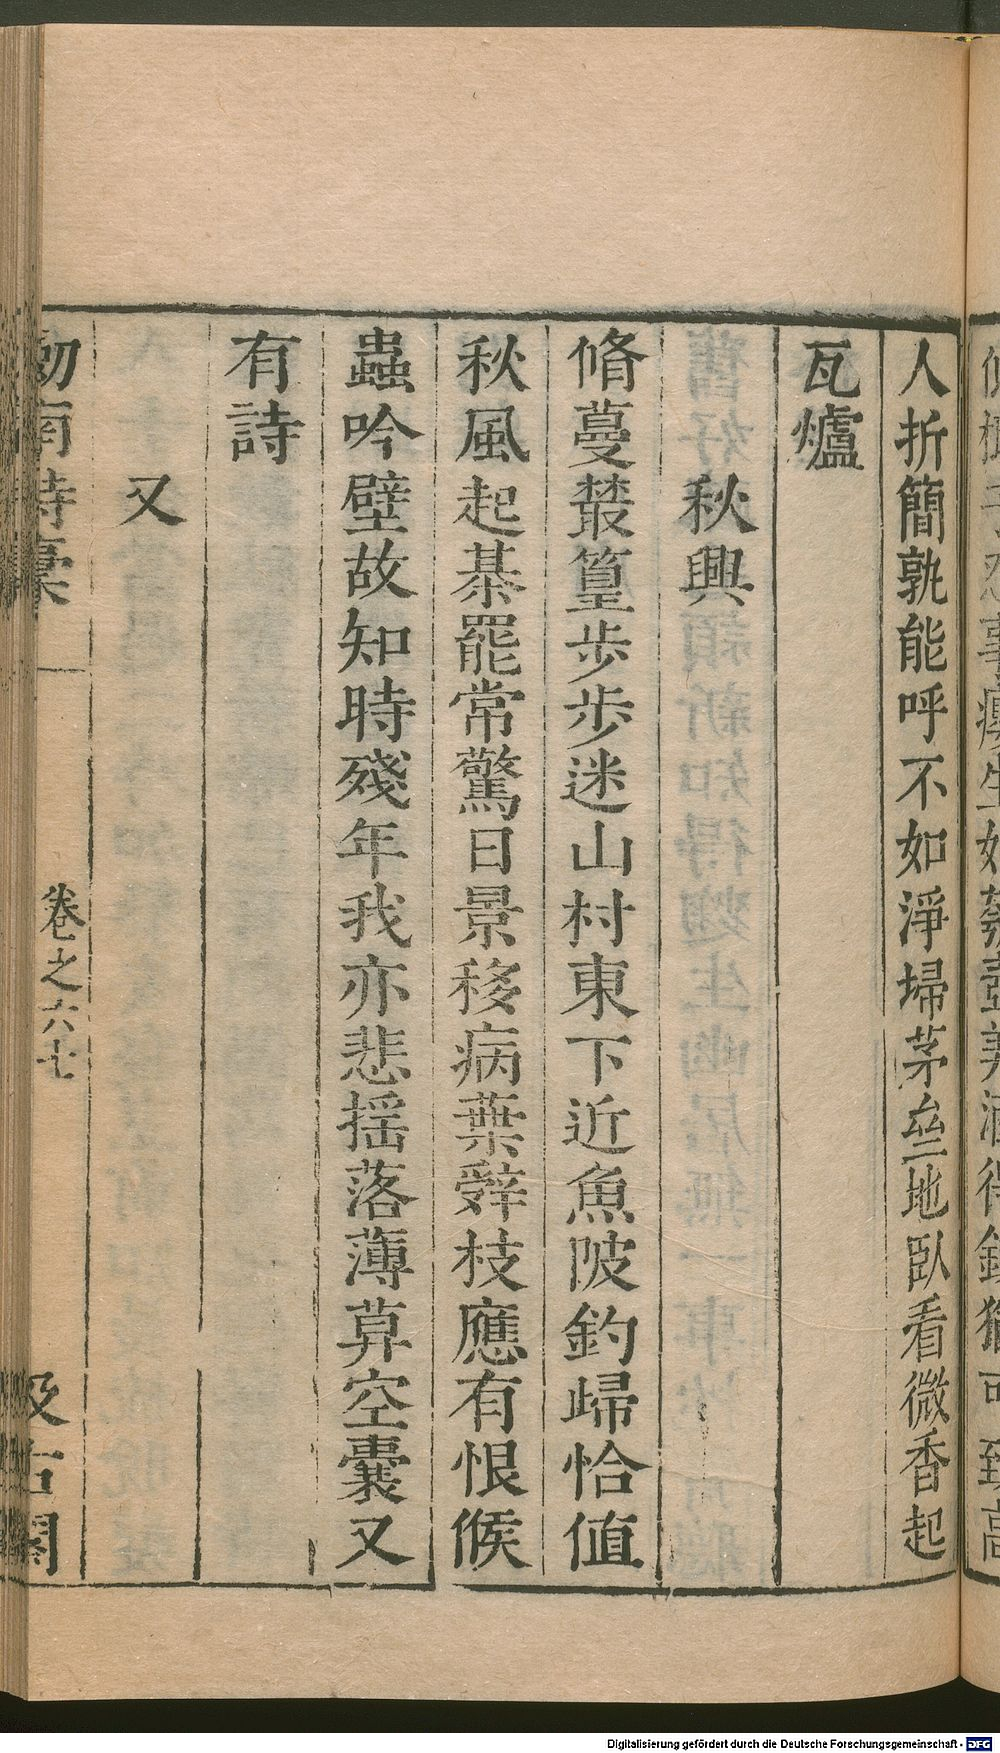 人折簡孰能呼不如淨埽茅堂地臥看微香起
瓦爐
秋興
脩蔓叢篁步步迷山村東下近魚陂釣歸恰値
秋風起棊罷常驚日景移病葉辭枝應有恨候
蟲吟壁故知時殘年我亦悲揺落薄莫空囊又
有詩
又
劒南詩稾
卷之六七
汲古閣
Digitalisierung gefördert durch die Deutsche Forschungsgemeinschaft - DFG